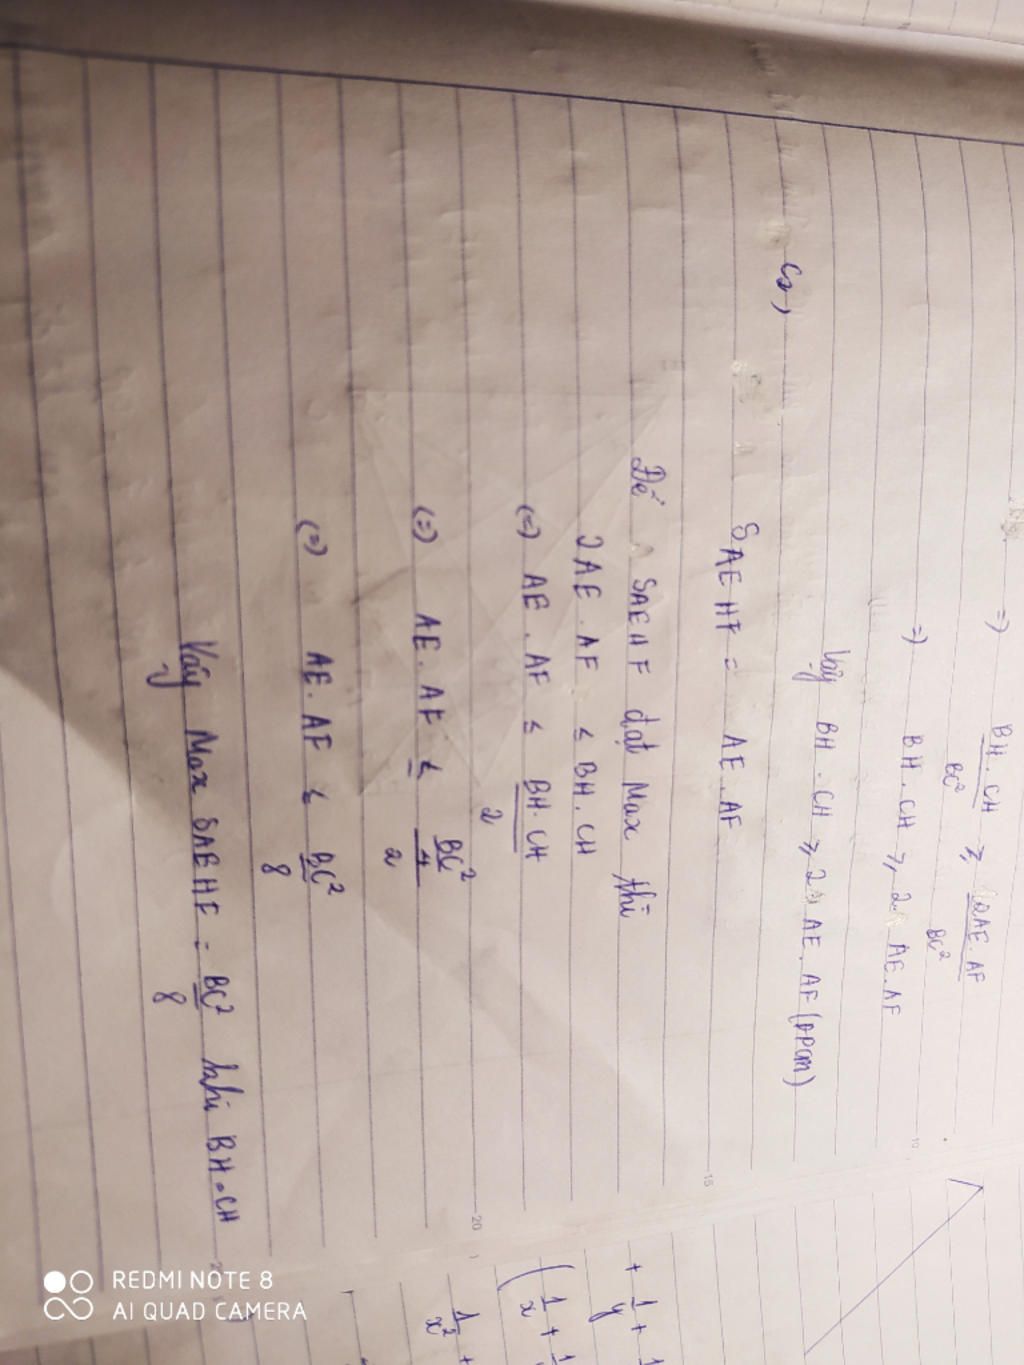 =) BH.CH/BC² ≥ 2AE.AF/BC²
=) BH.CH ≥ 2 AE.AF
Vậy BH.CH ≥ 2 AE.AF (ĐPCM)
c,
SAEHF = AE.AF
Để SAEHF đạt Max thì
2AE.AF ≤ BH.CH
(=) AE.AF ≤ BH.CH/2
(=) AE.AF ≤ BC²/4/2
(=) AE.AF ≤ BC²/8
Vậy Max SAEHF = BC²/8 khi BH=CH
+ 1/y +
(1/x +
1/x² +
15
20
REDMI NOTE 8
AI QUAD CAMERA